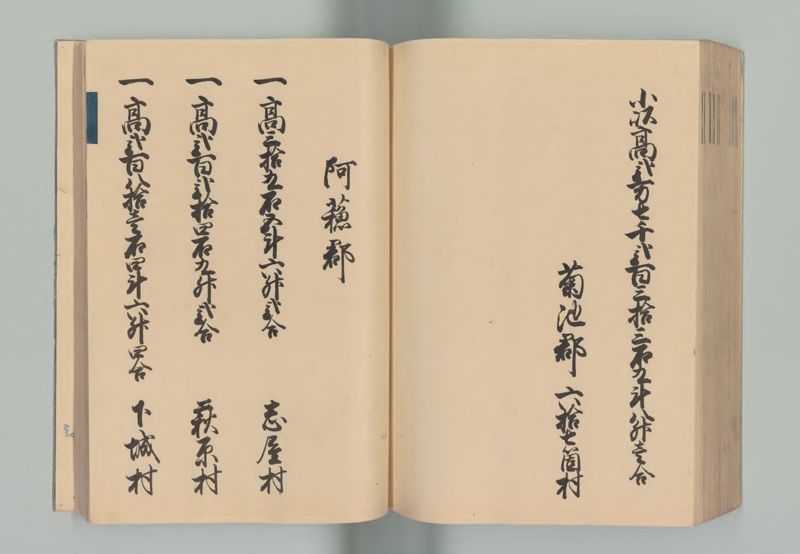 小以高弐万七千弐百三拾三石九斗八舛壱合
菊池郡 六拾七箇村
阿蘓郡
一高三拾九石五斗六舛弐合 志屋村
一高弐百弐拾四石九舛弐合 萩原村
一高弐百八拾壱石四斗六舛四合 下城村